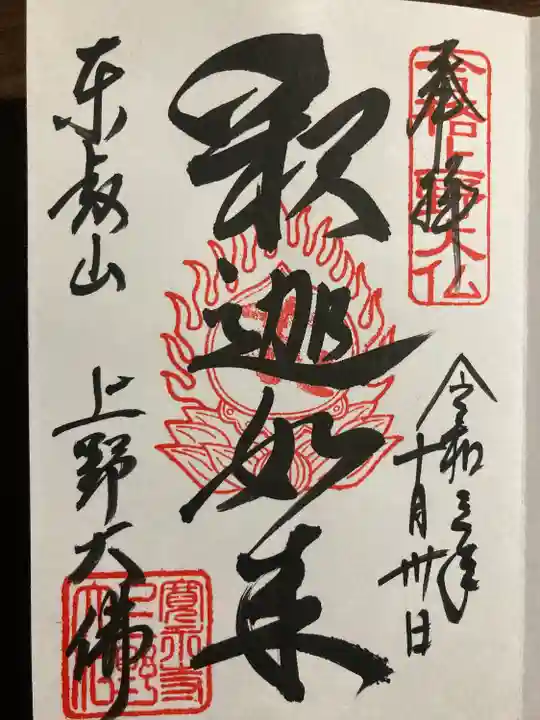 奉拝
令和三年
十月卅日
釈迦如来
東叡山
上野大佛
上野大仏
寛永寺